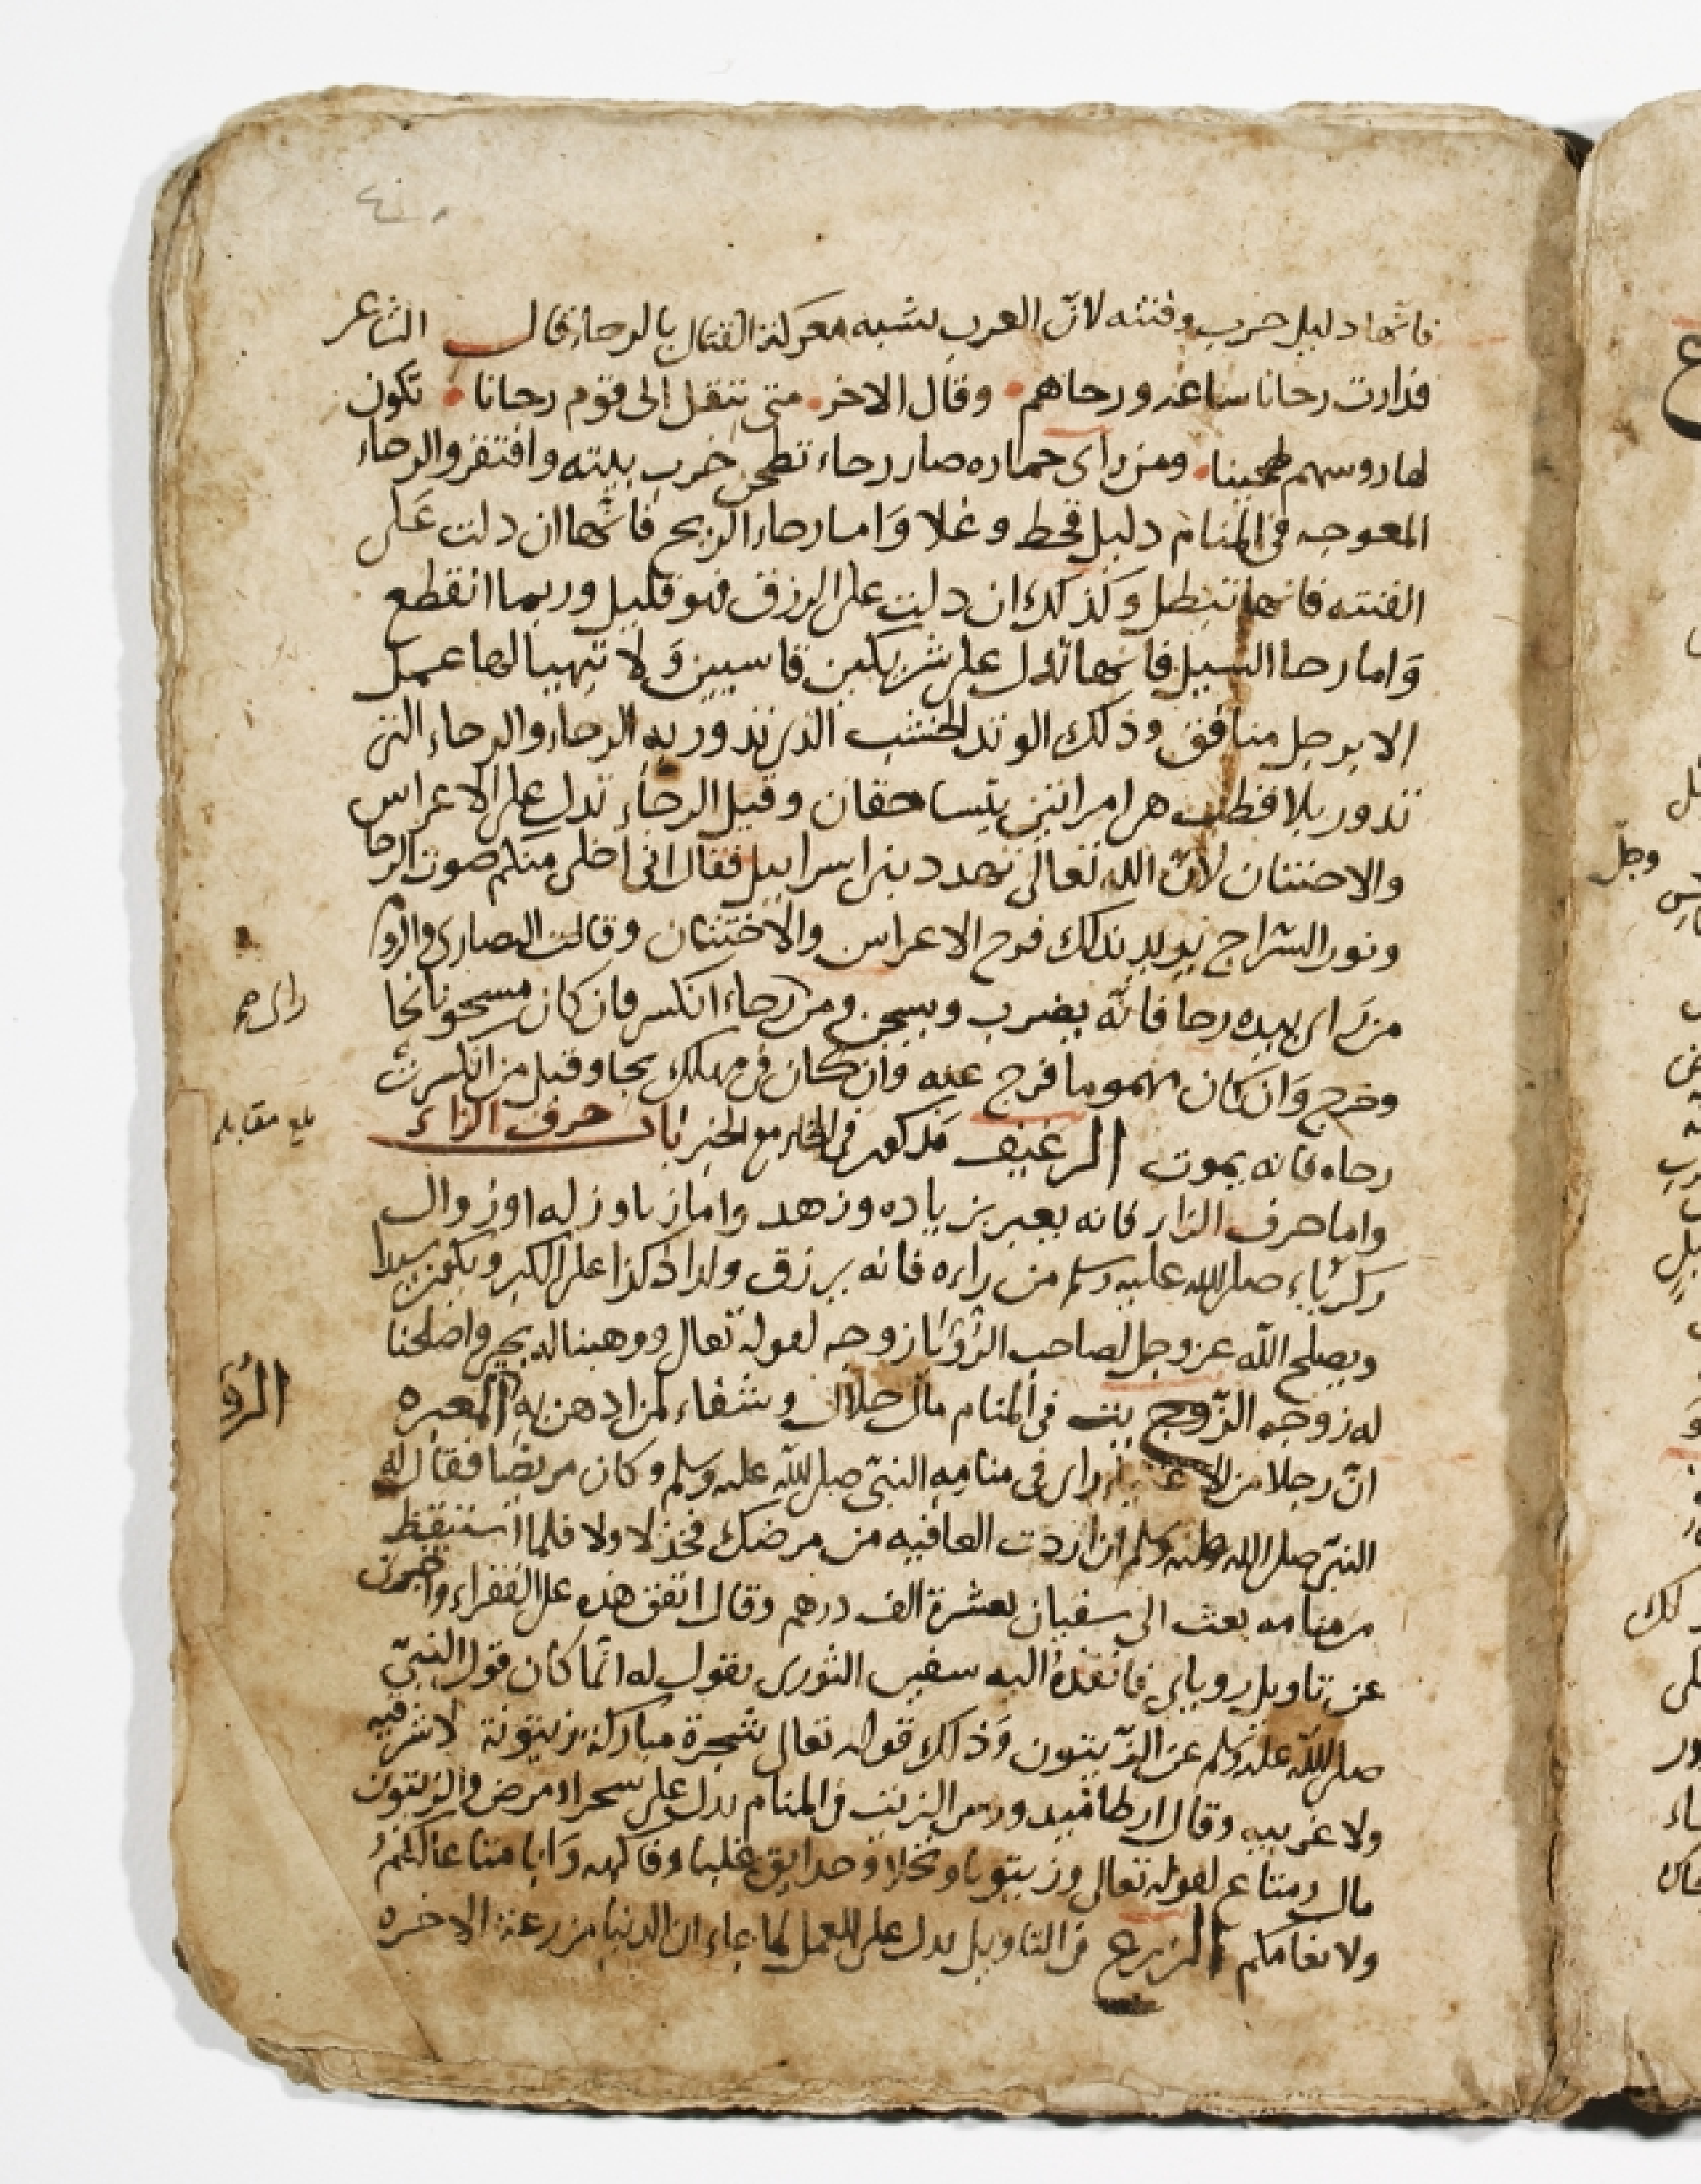 ٤٠
فانها دليل حرب وفتنه لانّ العرب تشبه معركة القتال بالرحاء قال الشاعر
فدارت رحانا ساعة ورحاهم • وقال الاخر • متى تنقل الى قوم رحانا • تكون
لها روسهم طحينا • ومن راى حماره صار رحاء تطحن خرب بيته وافتقر والرحاء
المعوجه فى المنام دليل قحط وغلا وَاما رحاء الريح فانّها ان دلت عَلى
الفتنه فانها تبطل وكذلك ان دلت على الرزق فهو قليل وربما انقطع
وَاما رحا السيل فانها تدل على شريكين قاسيين وَلا تتهيا لها عمل
الا برجل منافق وذلك الوتد الخشب الذى تدور به الرحاء والرحاء التى
تدور بلا قطب هى امراتين يتساحقان وقيل الرحاء تدل على الاعراس
والاختتان لانّ الله تعالى تهدد بنى اسراييل فقال انى اخلى منكم صوت الرحا
ونور السراج يريد بذلك فرح الاعراس والاختتان وقالت النصارى والروم
من راى بيده رحا فانّه يضرب ويسجن ومن رحاء انكسر فان كان مسجونا نجا
راى صح
وخرج وَان كان مهموما فرج عنه وان كان فى مهلك نجا وقيل من انكسرت
رحاه فانه يموت الرغيف مذكور فى الخاء مع الخبز باب حرف الزاء
بلغ مقابله
واما حرف الزاى فانه يعبر بزياده وزهد واما زنا وزله او زوال
زكرياء صلى الله عليه وسلم من راءه فانه يرزق ولدا ذكرا على الكبر ويكون سيدا
ويصلح الله عز وجل لصاحب الرؤيا زوجه لقوله تعالى ووهبنا له يحيى واصلحنا
له زوجه الزيت فى المنام مال حلال وشفاء لمن ادهن به المعبره
انّ رجلا من راى فى منامه النبىّ صلى الله عليه وسلم وكان مريضا فقال له
النبىّ صلى الله عليه وسلم ان اردت العافيه من مرضك فخذ لا ولا فلما استيقظ
من منامه بعث الى سفيان بعشرة الف درهم وقال انفق هذه على الفقراء
عن تاويل روياى فانفذ اليه سفين الثورى يقول له انّما كان قول النبىّ
صلى الله عليه وسلم عن الزّيتون وَذلك قوله تعالى شجرة مباركة زيتونة لا شرقيه
ولا غربيه وقال ارطاميدورس الزيت فى المنام يدل على سحر او مرض والزيتون
مال ومتاع لقوله تعالى وزيتونا ونخلا وحدايق غلبا وفاكهه وَابا متاعا لكم
ولانعامكم الزرع فى التاويل يدل على العمل لما جاء ان الدنيا مزرعة الاخره